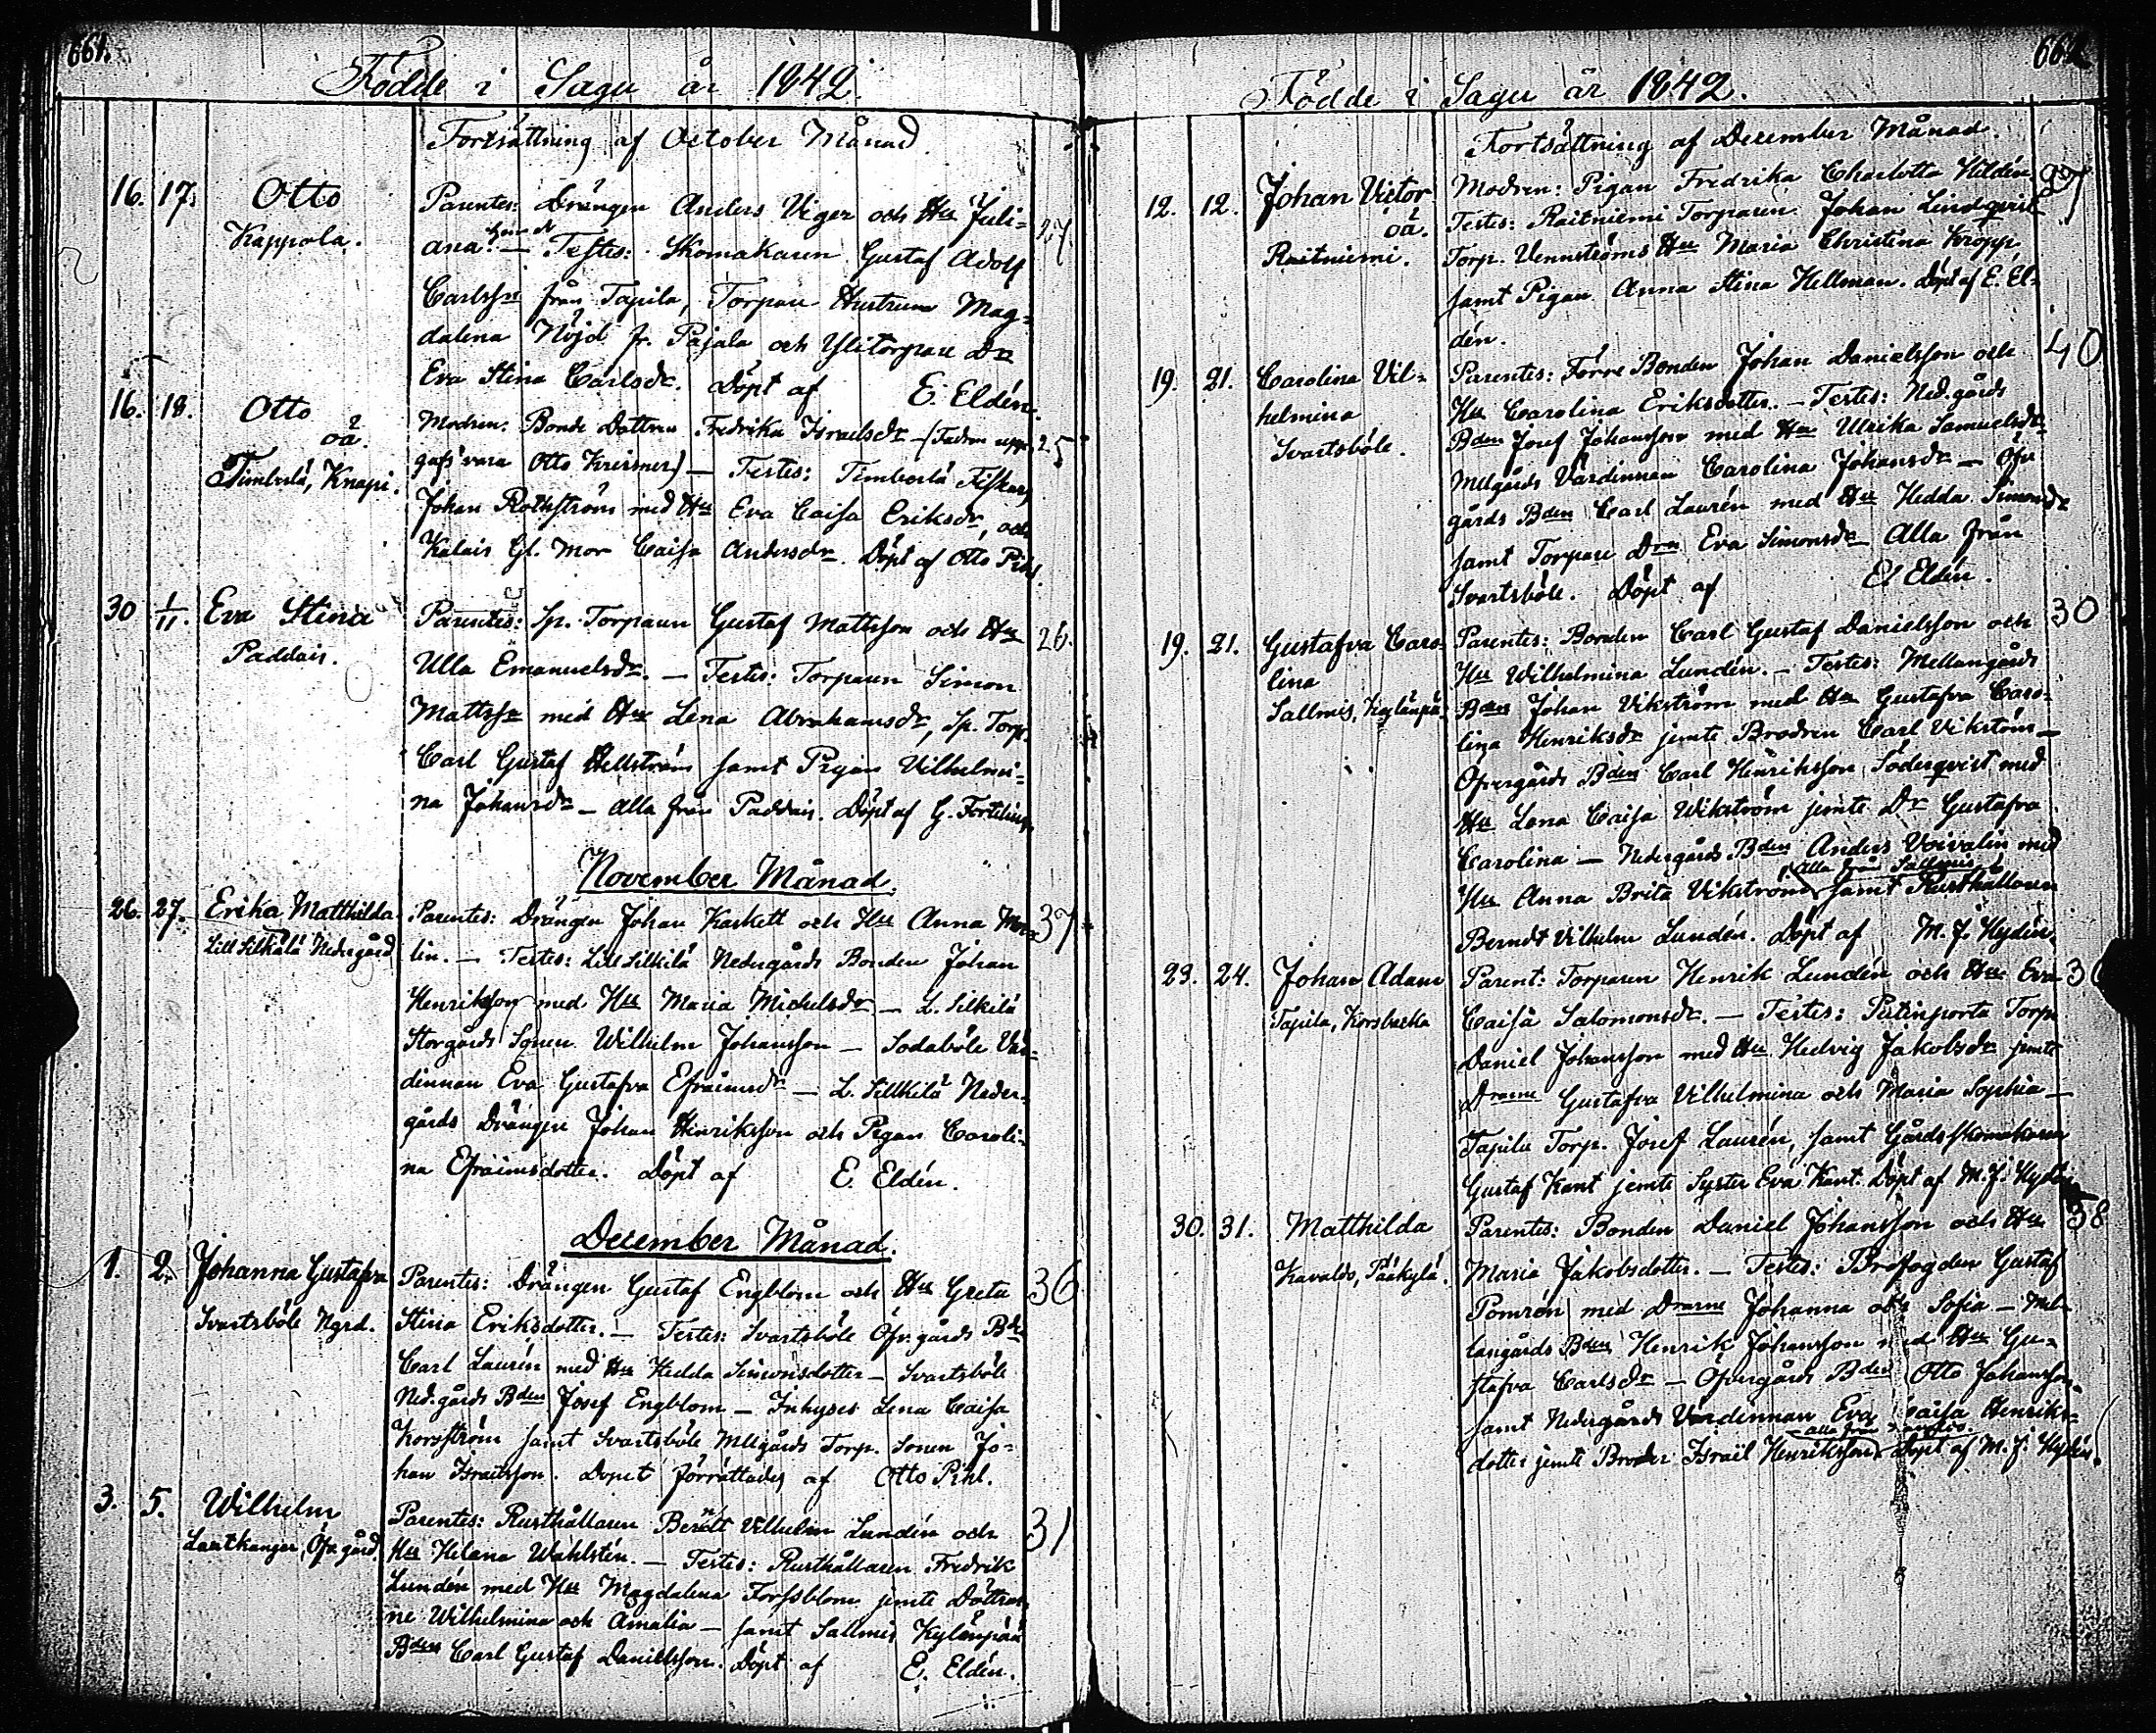 661.
Födde i Sagu år 1842.
Fortsättning af October Månad.
16. 17. Otto
Kappola.
Parentes: Drängen Anders Viger och Hu Juli-
ana — Testes: Skomakaren Gustaf Adolf
Carlsson från Tapila, Torpare Hustrun Mag-
dalena Nöjd fr. Pajala och Ylitorpare Dr
Eva Stina Carlsdr. Döpt af E. Eldén.
27
16. 18. Otto
oä.
Timberlä, Knapi.
Modren: Bonde Dottren Fredrika Israelsdr — (Fadren uppe-
gafs vara Otto Kreismer) — Testes: Timberlä Fiskare
Johan Rothström med Hu Eva Caisa Eriksdr, och
Kalais Gl. Mor Caisa Andersdr. Döpt af Otto Pihl.
25
30 1/11. Eva Stina
Paddais.
Parentes: Sp. Torparen Gustaf Mattsson och Hu
Ulla Emanuelsdr. — Testes: Torparen Simon
Mattsson med Hu Lena Abrahamsdr, Sp. Torp.
Carl Gustaf Hellström samt Pigan Vilhelmi-
na Johansdr — alla från Paddais. Döpt af G. Fortelius.
26.
November Månad.
26. 27. Erika Matthilda
Lill Silkilä Nedergård
Parentes: Drängen Johan Kaskett och Hu Anna Me-
lin. — Testes: Lill Silkilä Nedergårds Bonden Johan
Henriksson med Hu Maria Michelsdr — L. Silkilä
Storgårds Sonen Wilhelm Johansson — Sodaböle Vär-
dinnan Eva Gustafva Efraimsdr — L. Sillkilä Neder-
gårds Drängen Johan Henriksson och Pigan Caroli-
na Efraimsdotter. Döpt af E. Eldén.
37
December Månad.
1. 2. Johanna Gustafva
Svartsböle Ngrd.
Parentes: Drängen Gustaf Engblom och Hu Greta
Stina Eriksdotter. — Testes: Svartsböle Öfv.gårds Bden
Carl Laurén med Hu Hedda Simonsdotter — Svartsböle
Ned.gårds Bden Josef Engblom — Inhyses Lena Caisa
Korsström samt Svartsböle Mellgårds Torp. Sonen Jo-
han Israelsson. Dopet förrättades af Otto Pihl.
36
3. 5. Wilhelm
Lautkangar, Öfv.gård.
Parentes: Rusthållaren Berndt Vilhelm Lundén och
Hu Helena Wahlstén. — Testes: Rusthållaren Fredrik
Lundén med Hu Magdalena Forssblom jemte Döttrar-
ne Wilhelmina och Amalia — samt Sallmis Kylänpää
Bden Carl Gustaf Danielsson. Döpt af E. Eldén.
31
662.
Födde i Sagu år 1842.
Fortsättning af December Månad.
12. 12. Johan Victor
oä.
Raitniemi.
Modren: Pigan Fredrika Charlotta Hildén
Testes: Raitniemi Torparen Johan Lindqvist
Torp. Vennströms Hu Maria Christina Kropp
samt Pigan Anna Stina Hellman. Döpt af E. El-
dén.
19. 21. Carolina Vil-
helmina
Svartsböle.
Parentes: Förre Bonden Johan Danielsson och
Hu Carolina Eriksdotter. — Testes: Ned.gårds
Bden Josef Johansson med Hu Ulrika Samuelsdr
Mellgårds Värdinnan Carolina Johansdr — Öfv
gårds Bden Carl Laurén med Hu Hedda Simonsdr
samt Torpare Dren Eva Simonsdr — Alla från
Svartsböle. Döpt af El Eldén.
40
19. 21. Gustafva Caro-
lina
Sallmis, Kylänpä.
Parentes: Bonden Carl Gustaf Danielsson och
Hu Wilhelmina Lundén. — Testes: Mellangårds
Bden Johan Vikström med Hu Gustafva Caro-
lina Henriksdr jemte Brodren Carl Vikström —
Öfvergårds Bden Carl Henriksson Söderqvist med
Hu Lena Caisa Wikström jemte Dr Gustafva
Carolina — Nedergårds Bden Anders Voivalin med
Hu Anna Brita Vikström, alla från Sallmis samt Rusthållaren
Berndt Vilhelm Lundén. Döpt af M. J. Hydén.
30
23. 24. Johan Adam
Tapila, Korsbacka
Parent: Torparen Henrik Lundén och Hu Eva
Caisa Salomonsdr. — Testes: Pertinporta Torp.
Daniel Johansson med Hu Hedvig Jakobsdr jemte
Drarne Gustafva Vilhelmina och Maria Sophia —
Tapila Torp. Josef Laurén, samt Gårdsskomakaren
Gustaf Kant jemte Syster Eva Kant. Döpt af M. J. Hydén
30. 31. Matthilda
Kavaldo, Pääkylä.
Parentes: Bonden Daniel Johansson och Hu
Maria Jakobsdotter. — Testes: Brofogden Gustaf
Pomrén med Drarne Johanna och Sofia — Mel-
langårds Bden Henrik Johansson med Hu Gu-
stafva Carlsdr — Öfvergårds Bden Otto Johansson
samt Nedergårds Värdinnan Eva Caisa Henriks-
dotter jemte Broder Israël Henriksson — alla från Döpt af M. J. Hydén.
38